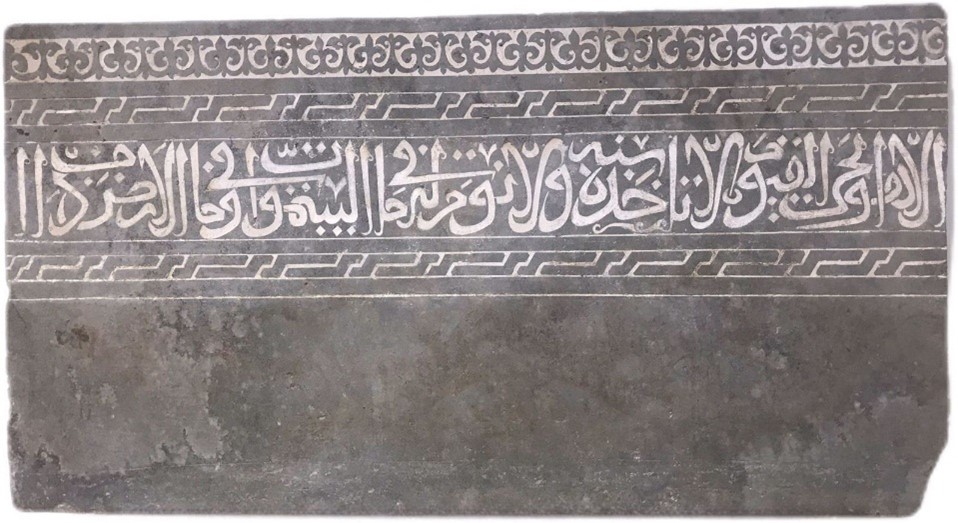 الا هو الحي القيوم لا تأخذه سنة ولا نوم له ما في السموات وما في الارض من ذا